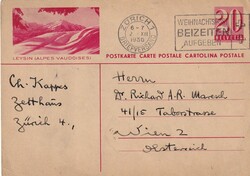 ZÜRICH 1
WEIHNACHTS
BEIZEITEN
AUFGEBEN
20
HELVETIA
LEYSIN (ALPES VAUDOISES)
POSTKARTE CARTE POSTALE CARTOLINA POSTALE
Ch. Kappes
Zelthaus
Zürich 4,
Herrn
Dr. Richard A.R. Maresch
41/15 Taborstrasse
Wien 2
Österreich